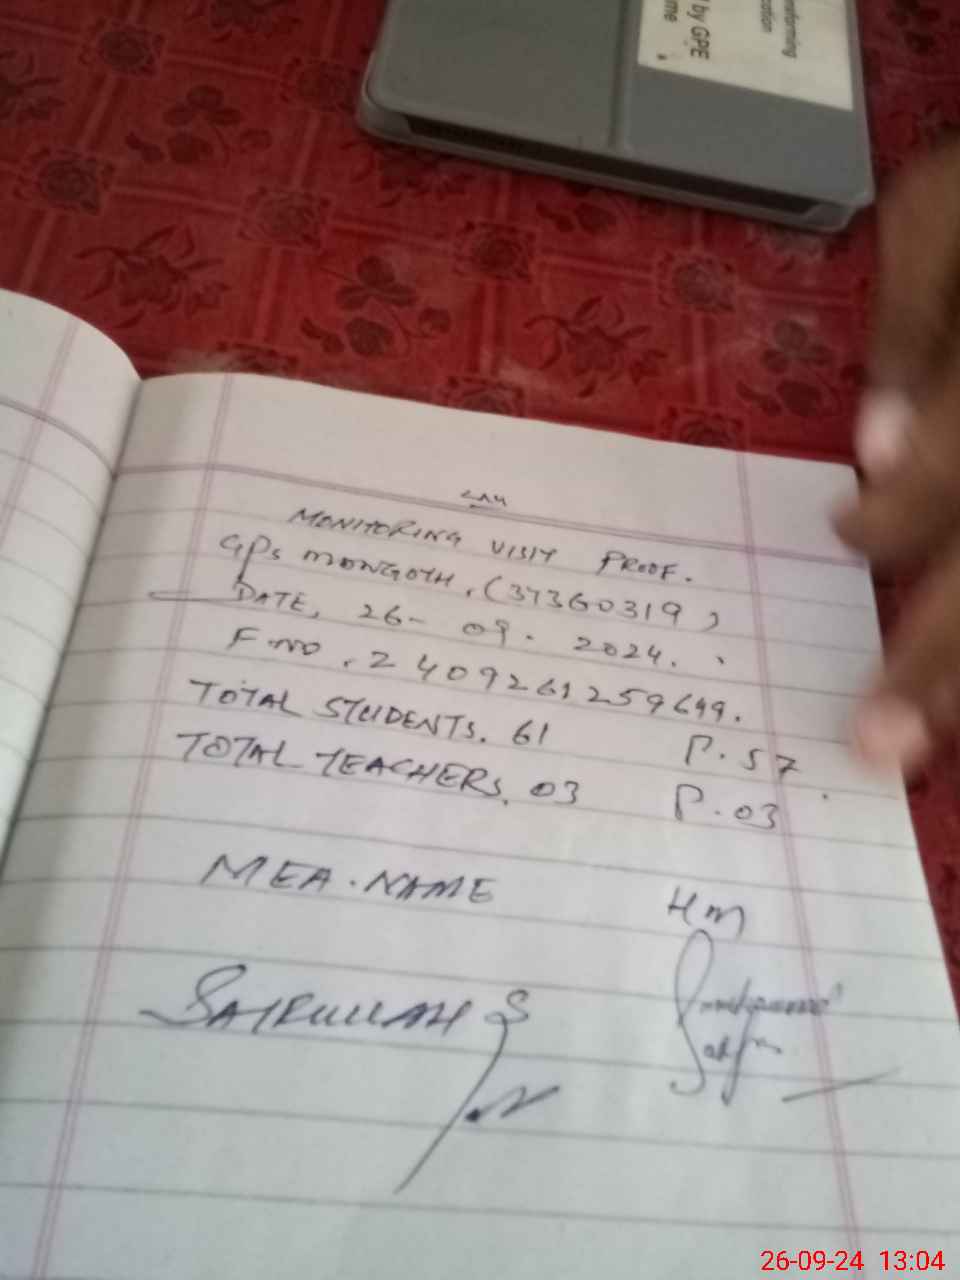 nsforming
cation
l by GPE
me
MONITORING VISIT PROOF.
GPS MONGOTH. (37360319)
DATE, 26-09.2024.
F.NO. 2409261259649.
TOTAL STUDENTS. 61 P.57
TOTAL TEACHERS. 03 P.03
MEA.NAME HM
SAIFULLAH S
26-09-24 13:04